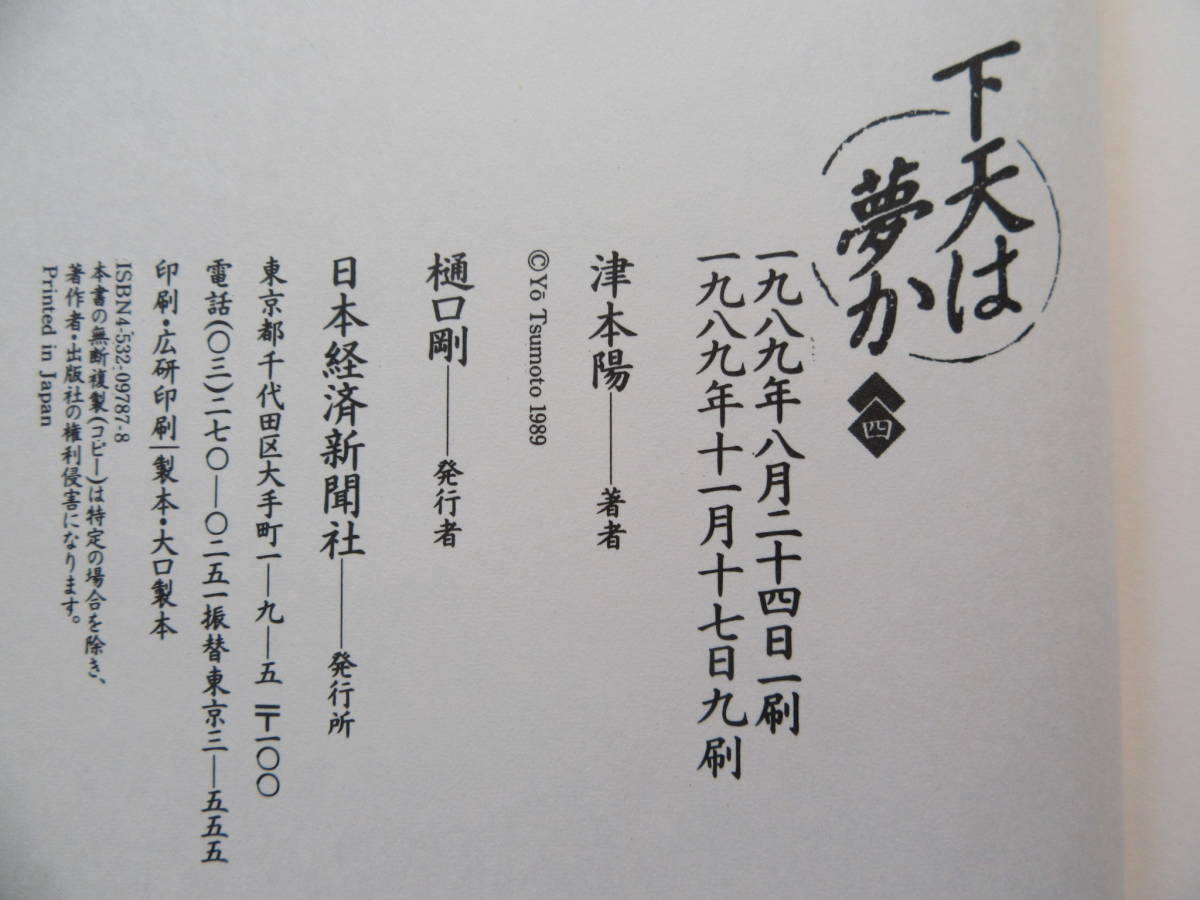 下天は
夢か
四
一九八九年八月二十四日一刷
一九八九年十一月十七日九刷
津本陽――著者
©Yō Tsumoto 1989
樋口剛――発行者
日本経済新聞社――発行所
東京都千代田区大手町一―九―五 〒一〇〇
電話(〇三)二七〇―〇二五一振替東京三―五五五
印刷・広研印刷｜製本・大口製本
ISBN4-532-09787-8
本書の無断複製(コピー)は特定の場合を除き、
著作者・出版社の権利侵害になります。
Printed in Japan